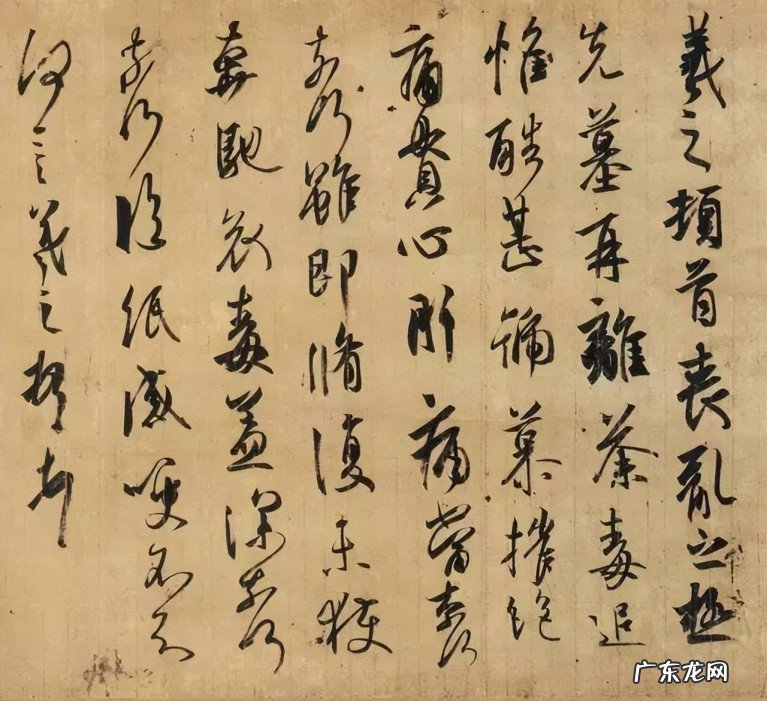 羲之頓首喪亂之極
先墓再離荼毒追
惟酷甚號慕摧絶
痛貫心肝痛當奈何
奈何雖即脩復未獲
奔馳哀毒益深奈何
奈何臨紙感哽不知
何言羲之頓首頓首
广东龙网